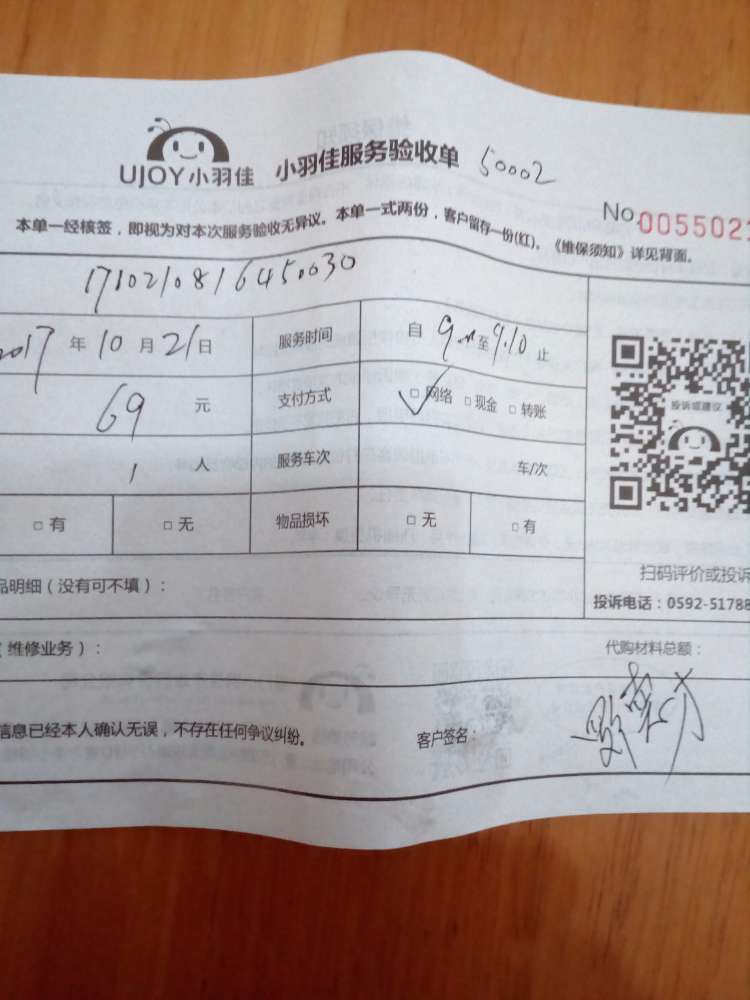 UJOY小羽佳 小羽佳服务验收单 50002
No.005502
本单一经核签，即视为对本次服务验收无异议。本单一式两份，客户留存一份(红)，《维保须知》详见背面。
1710210816450030
2017 年 10 月 21 日 服务时间 自 9 至 9.10 止
69 元 支付方式 ☑ 网络 □ 现金 □ 转账
1 人 服务车次 车/次
投诉或建议
□ 有 □ 无 物品损坏 □ 无 □ 有
扫码评价或投诉
品明细（没有可不填）：
投诉电话：0592-51788
（维修业务）： 代购材料总额：
信息已经本人确认无误，不存在任何争议纠纷。 客户签名：